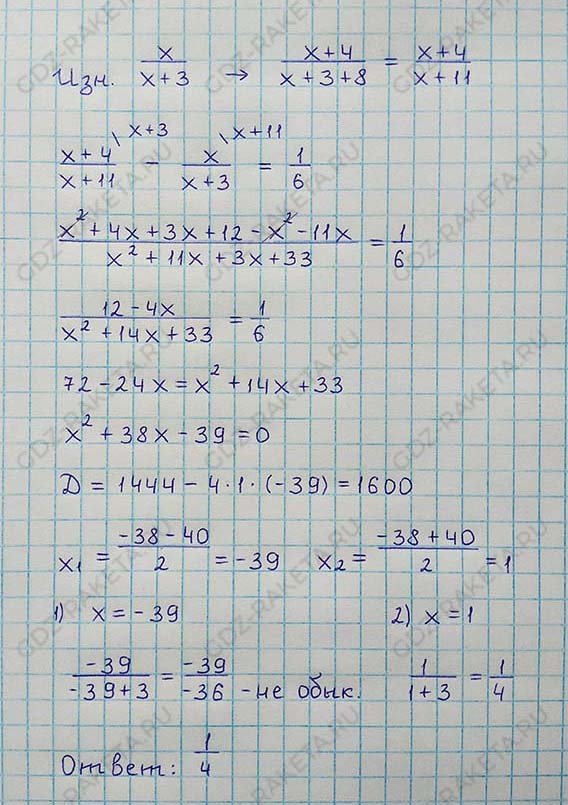 Изн. x/(x+3) → (x+4)/(x+3+8) = (x+4)/(x+11)
(x+4)/(x+11) \ x+3 − x/(x+3) \ x+11 = 1/6
(x²+4x+3x+12−x²−11x)/(x²+11x+3x+33) = 1/6
(12−4x)/(x²+14x+33) = 1/6
72−24x=x²+14x+33
x²+38x−39=0
D = 1444−4·1·(−39)=1600
x₁ = (−38−40)/2 = −39 x₂ = (−38+40)/2 = 1
1) x=−39 2) x=1
−39/(−39+3) = −39/−36 - не обык. 1/(1+3) = 1/4
Ответ: 1/4
GDZ-RAKETA.RU